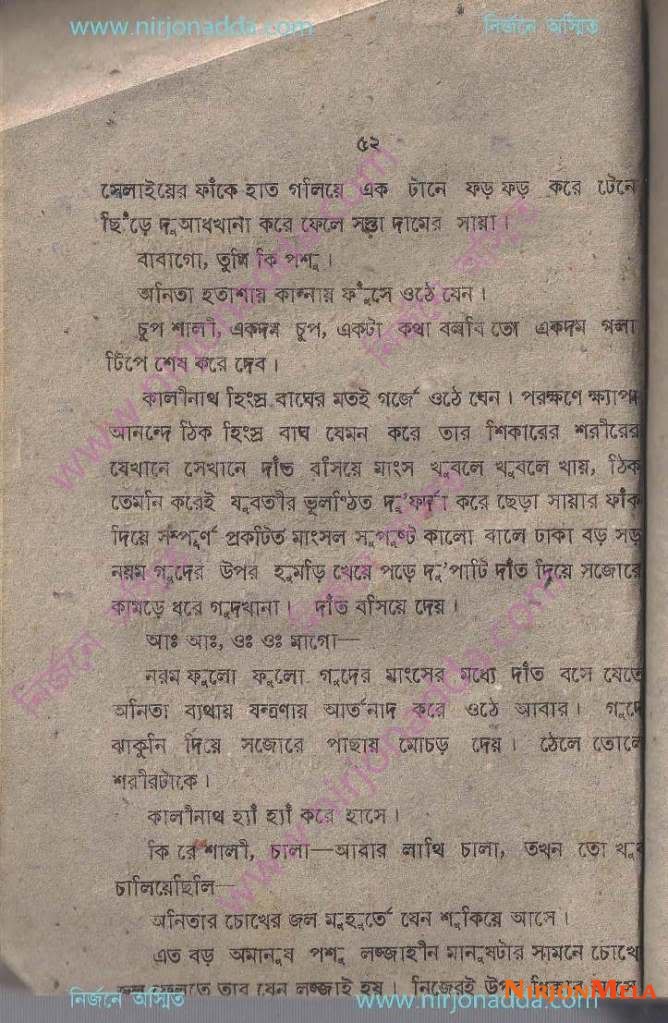 www.nirjonadda.com নির্জনে অস্মিত
৫২
সেলাইয়ের ফাঁকে হাত গলিয়ে এক টানে ফড় ফড় করে টেনে
ছিঁড়ে দু আধখানা করে ফেলে সস্তা দামের সায়া।
বাবাগো, তুমি কি পশু।
অনিতা হতাশায় কান্নায় ফুঁসে ওঠে যেন।
চুপ শালী, একদম চুপ, একটা কথা বলবি তো একদম গলা
টিপে শেষ করে দেব।
কালীনাথ হিংস্র বাঘের মতই গর্জে ওঠে যেন। পরক্ষণে ক্ষ্যাপা
আনন্দে ঠিক হিংস্র বাঘ যেমন করে তার শিকারের শরীরের
যেখানে সেখানে দাঁত বসিয়ে মাংস খুবলে খুবলে খায়, ঠিক
তেমনি করেই যুবতীর ভূলণ্ঠিত দু'ফর্দা করে ছেড়া সায়ার ফাঁক
দিয়ে সম্পূর্ণ প্রকটিত মাংসল সুপুষ্ট কালো বালে ঢাকা বড় সড়
নরম গুদের উপর হুমড়ি খেয়ে পড়ে দু'পাটি দাঁত দিয়ে সজোরে
কামড়ে ধরে গুদখানা। দাঁত বসিয়ে দেয়।
আঃ আঃ, ওঃ ওঃ মাগো—
নরম ফুলো ফুলো গুদের মাংসের মধ্যে দাঁত বসে যেতে
অনিতা ব্যথায় যন্ত্রণায় আর্তনাদ করে ওঠে আবার। গুদে
ঝাকুনি দিয়ে সজোরে পাছায় মোচড় দেয়। ঠেলে তোলে
শরীরটাকে।
কালীনাথ হ্যাঁ হ্যাঁ করে হাসে।
কি রে শালী, চালা—আবার লাথি চালা, তখন তো খুব
চালিয়েছিলি—
অনিতার চোখের জল মুহূর্তে যেন শুকিয়ে আসে।
এত বড় অমানুষ পশু লজ্জাহীন মানুষটার সামনে চোখে
জল ফেলতে তার যেন লজ্জাই হয়। নিজেরই উপর
নির্জনে অস্মিত www.nirjonadda.com NIRJONMELA